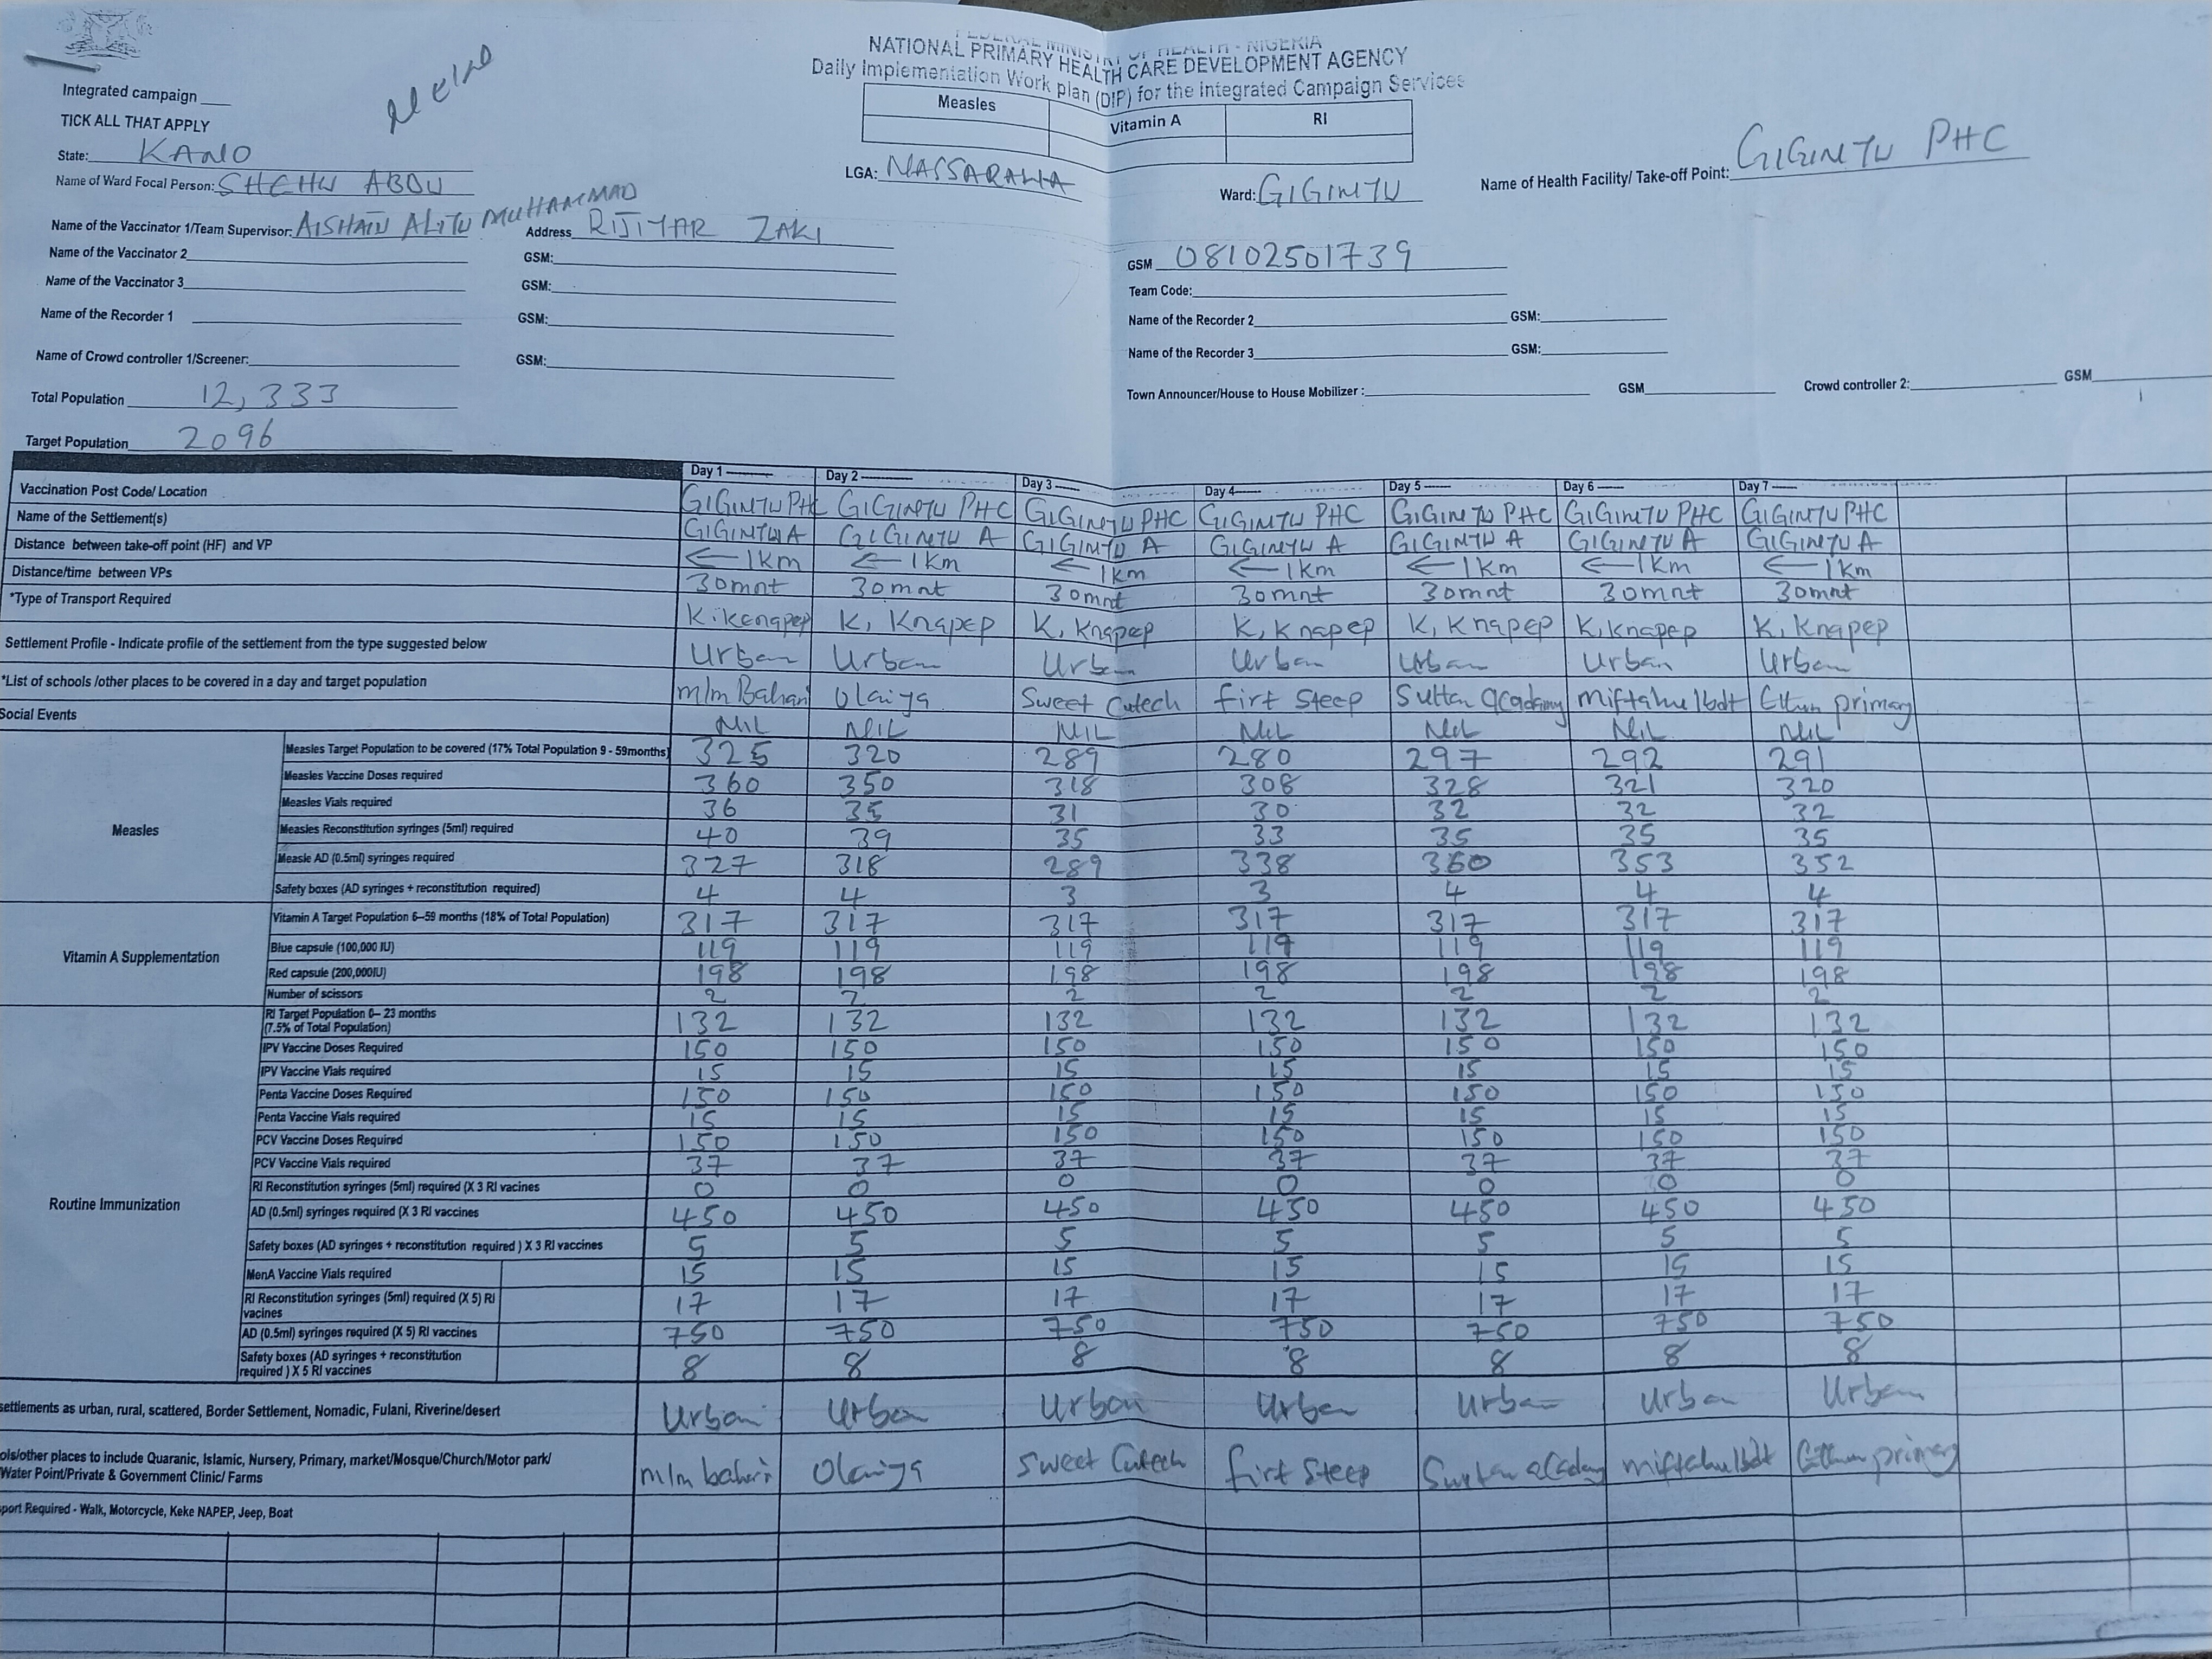 FEDERAL MINISTRY OF HEALTH - NIGERIA
NATIONAL PRIMARY HEALTH CARE DEVELOPMENT AGENCY
Daily Implementation Work plan (DIP) for the Integrated Campaign Services
Integrated campaign
TICK ALL THAT APPLY
Measles Vitamin A RI
State: KANO LGA: NASSARAWA Ward: GIGINYU Name of Health Facility/ Take-off Point: GIGINYU PHC
Name of Ward Focal Person: SHEHU ABDU
Name of the Vaccinator 1/Team Supervisor: AISHATU ALIYU MUHAMMAD Address RIJIYAR ZAKI GSM 08102501739
Name of the Vaccinator 2 GSM: Team Code:
Name of the Vaccinator 3 GSM: Name of the Recorder 2 GSM:
Name of the Recorder 1 GSM: Name of the Recorder 3 GSM:
Name of Crowd controller 1/Screener: GSM: Town Announcer/House to House Mobilizer: GSM Crowd controller 2: GSM
Total Population 12,333
Target Population 2096
Day 1 Day 2 Day 3 Day 4 Day 5 Day 6 Day 7
Vaccination Post Code/ Location GIGINYU PHC GIGINYU PHC GIGINYU PHC GIGINYU PHC GIGINYU PHC GIGINYU PHC GIGINYU PHC
Name of the Settlement(s) GIGINYU A GIGINYU A GIGINYU A GIGINYU A GIGINYU A GIGINYU A GIGINYU A
Distance between take-off point (HF) and VP <—1km <—1km <—1km <—1km <—1km <—1km <—1km
Distance/time between VPs 30mnt 30mnt 30mnt 30mnt 30mnt 30mnt 30mnt
*Type of Transport Required Kikenapep K, Knapep K, Knapep K, Knapep K, Knapep K, Knapep K, Knapep
Settlement Profile - Indicate profile of the settlement from the type suggested below Urban Urban Urban Urban Urban Urban Urban
*List of schools /other places to be covered in a day and target population m/m Bahari Olaiya Sweet Catech first Steep Sultan academy primary
Social Events Nil Nil Nil Nil Nil Nil Nil
Measles
Measles Target Population to be covered (17% Total Population 9 - 59months) 325 320 289 280 297 292 291
Measles Vaccine Doses required 360 350 318 308 328 321 320
Measles Vials required 36 35 31 30 32 32 32
Measles Reconstitution syringes (5ml) required 40 39 35 33 35 35 35
Measle AD (0.5ml) syringes required 327 318 289 338 360 353 352
Safety boxes (AD syringes + reconstitution required) 4 4 3 3 4 4 4
Vitamin A Supplementation
Vitamin A Target Population 6–59 months (18% of Total Population) 317 317 317 317 317 317 317
Blue capsule (100,000 IU) 119 119 119 119 119 119 119
Red capsule (200,000IU) 198 198 198 198 198 198 198
Number of scissors 2 2 2 2 2 2 2
Routine Immunization
RI Target Population 6– 23 months (7.5% of Total Population) 132 132 132 132 132 132 132
IPV Vaccine Doses Required 150 150 150 150 150 150 150
IPV Vaccine Vials required 15 15 15 15 15 15 15
Penta Vaccine Doses Required 150 150 150 150 150 150 150
Penta Vaccine Vials required 15 15 15 15 15 15 15
PCV Vaccine Doses Required 150 150 150 150 150 150 150
PCV Vaccine Vials required 37 37 37 37 37 37 37
RI Reconstitution syringes (5ml) required (X 3 RI vacines 0 0 0 0 0 0 0
AD (0.5ml) syringes required (X 3 RI vaccines 450 450 450 450 450 450 450
Safety boxes (AD syringes + reconstitution required ) X 3 RI vaccines 5 5 5 5 5 5 5
MenA Vaccine Vials required 15 15 15 15 15 15 15
RI Reconstitution syringes (5ml) required (X 5) RI vaccines 17 17 17 17 17 17 17
AD (0.5ml) syringes required (X 5) RI vaccines 750 750 750 750 750 750 750
Safety boxes (AD syringes + reconstitution required ) X 5 RI vaccines 8 8 8 8 8 8 8
settlements as urban, rural, scattered, Border Settlement, Nomadic, Fulani, Riverine/desert Urban Urban Urban Urban Urban Urban Urban
ols/other places to include Quaranic, Islamic, Nursery, Primary, market/Mosque/Church/Motor park/ m/m bahari Olaiya Sweet Catech first Steep Sultan academy primary
Water Point/Private & Government Clinic/ Farms
port Required - Walk, Motorcycle, Keke NAPEP, Jeep, Boat